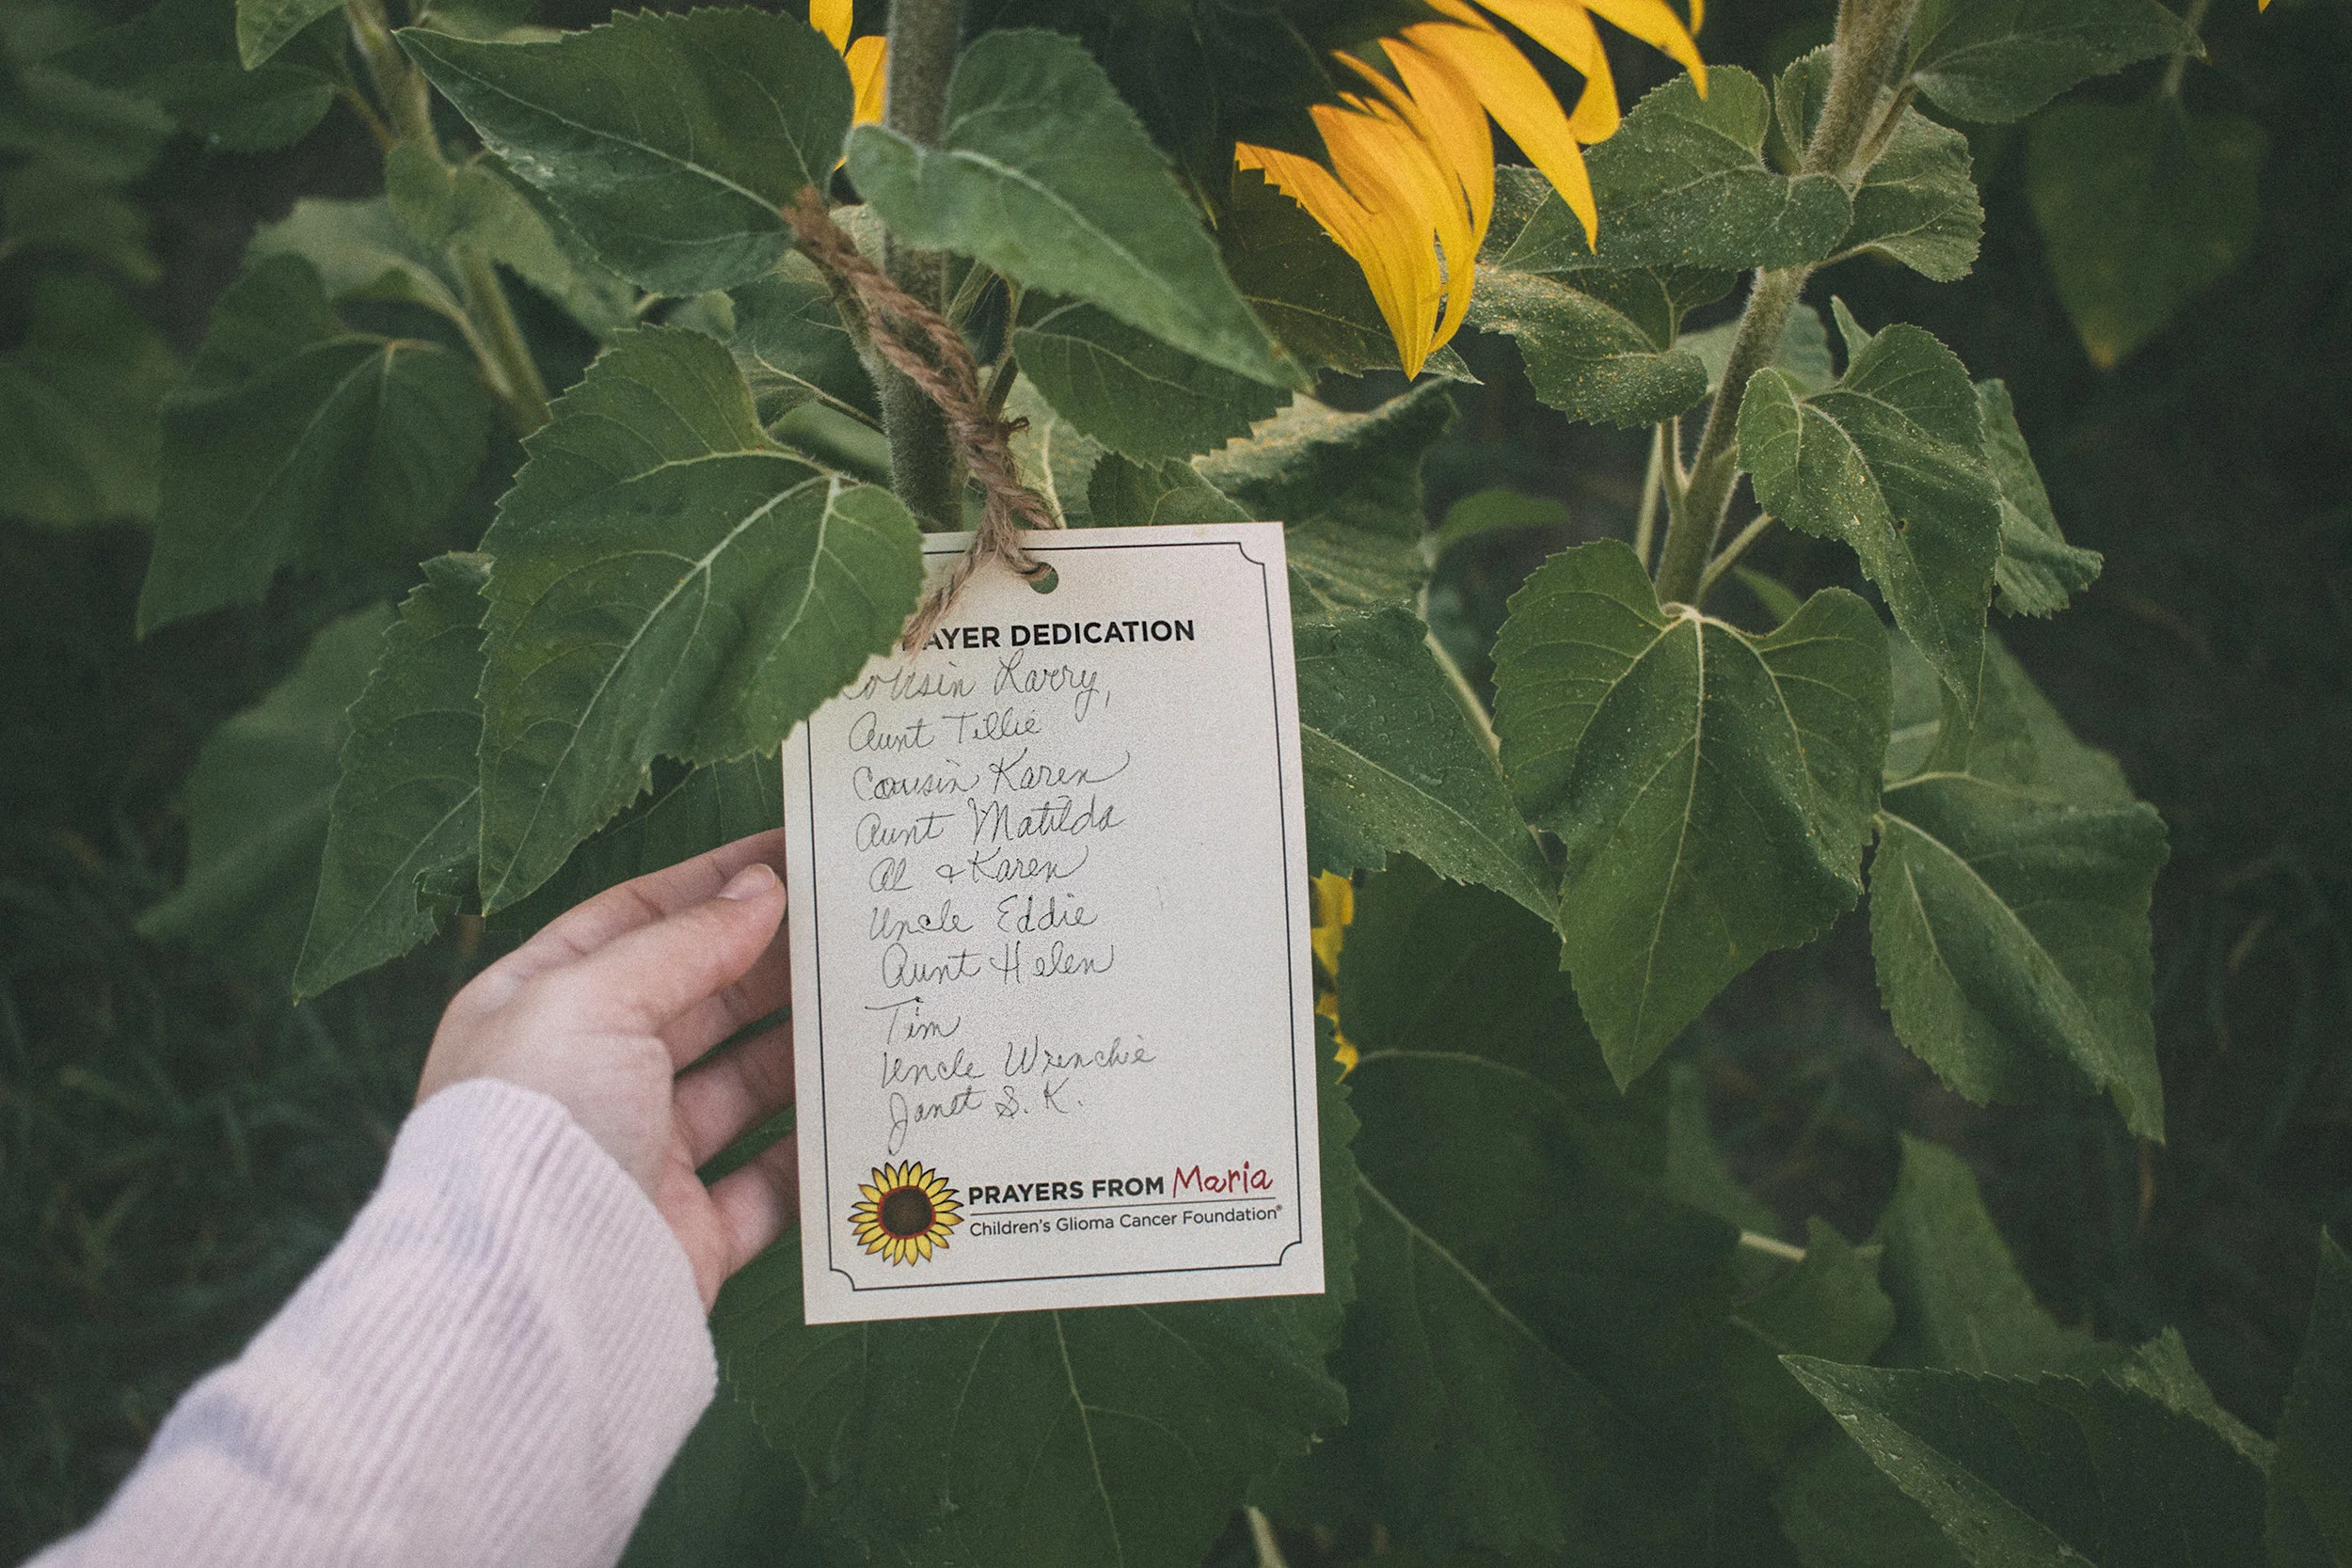 AYER DEDICATION
Cousin Larry,
Aunt Tillie
Cousin Karen
Aunt Matilda
Al & Karen
Uncle Eddie
Aunt Helen
Tim
Uncle Wrenchie
Janet S. K.
PRAYERS FROM Maria
Children's Glioma Cancer Foundation®